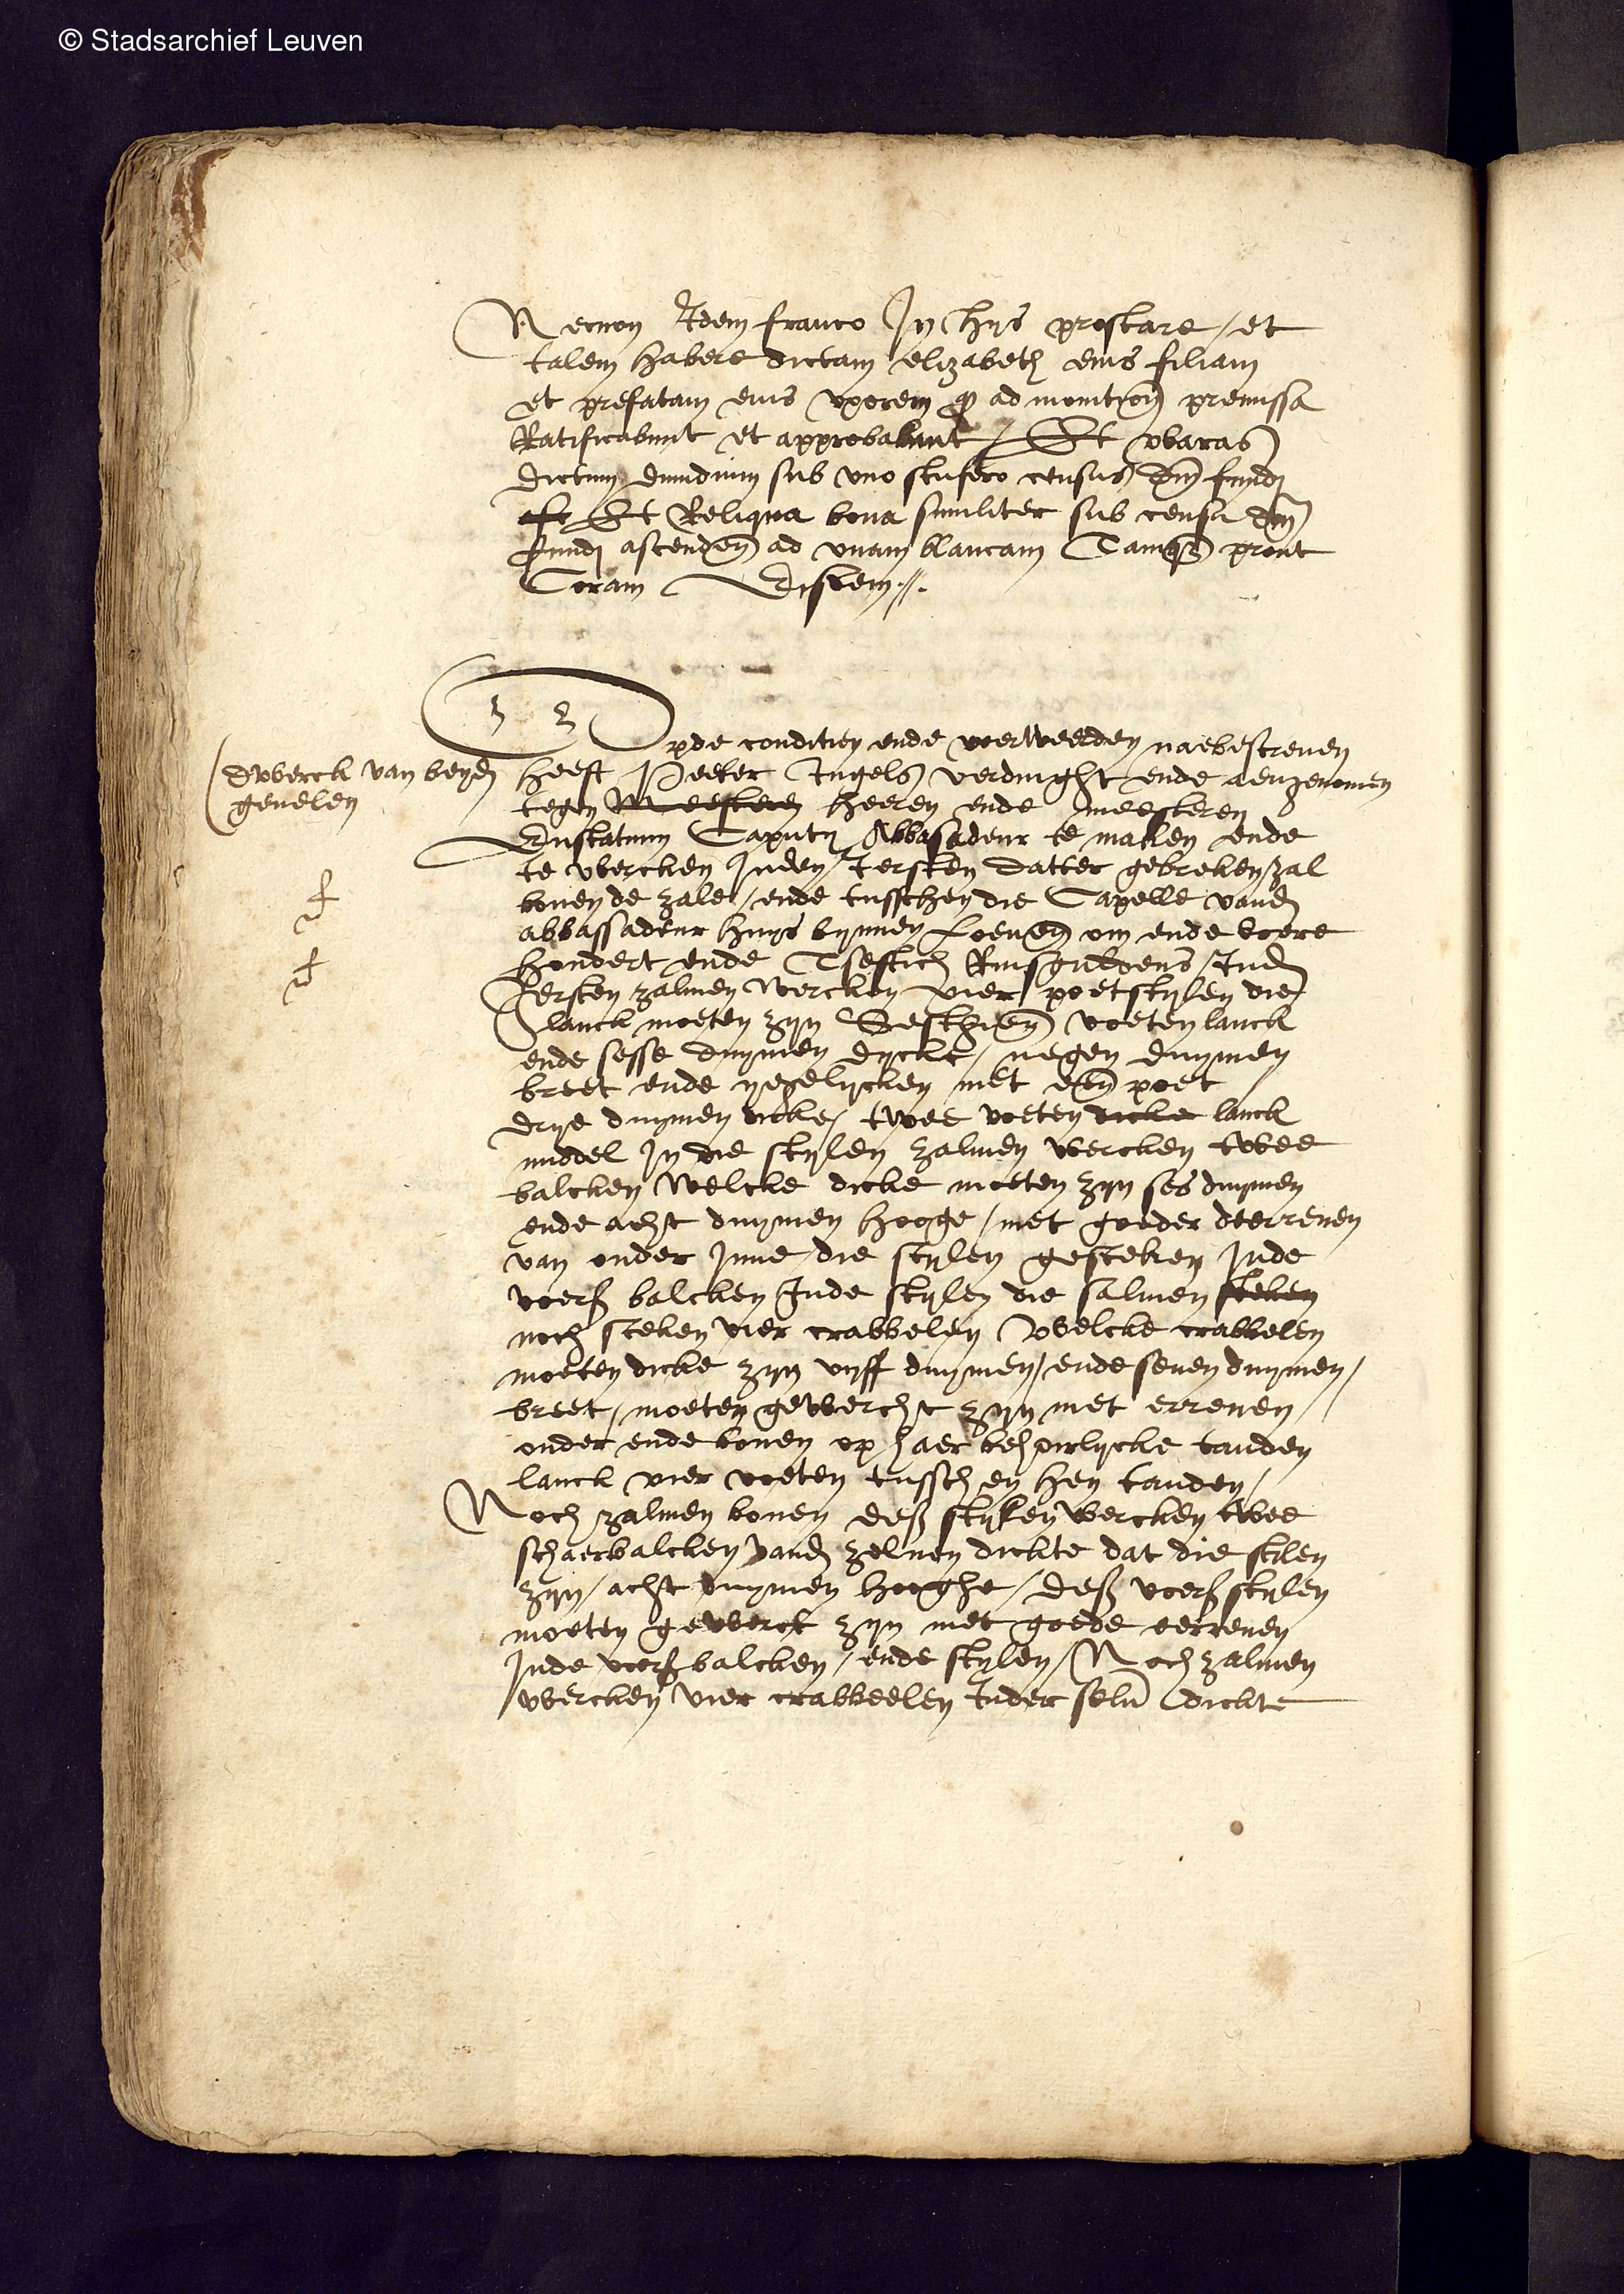 © Stadsarchief Leuven
Necnon Idem franco In hijs prestare / et
talem habere dictam elizabeth eius filiam
et prefatam eius uxorem ad monitionem premissa
Ratificabunt et approbabunt / Et waras
dictum dimidium sub uno stufero census dni fundi
Et Reliqua bona similiter sub censu dni
fundi ascenden ad unam blancam Tamquam prout
Coram Eisdem //.
Opde conditien ende voerweerden naebescreuen
dwerck van beyden
geuelen
heeft Peeter Ingels verdinght ende aengenomen
tegen Meesteren heeren ende meesteren
Eustatium Caputy Abbasadeur te maken ende
te wercken Inden Iersten datter gebreken zal
bouen de zale / ende tusschen die Capelle vanden
abbassadeur huys bynnen Loeuen om ende voere
hondert ende Tsestich Rinsguldens / Inden
Iersten zalmen wercken vier poetstylen die
lanck moeten zyn Sesthien voeten lanck
ende sesse duymen dycke / negen duymen
breet ende yegelycken met een poet
drye duymen dicke / twee voeten dicke lanck
middel In die stylen zalmen wercken twee
balcken welcke dicke moeten zyn ses duymen
ende acht duymen hooge / met goeder
van onder Inne die stylen gesteken Inde
voers balcken Inde stylen die salmen steken
noch steken vier crabbelen Welcke crabbelen
moeten dicke zyn vyff duymen / ende seuen duymen /
breet / moeten gewercht zyn met erreuen
onder ende bouen op haer behoirlycke tanden
lanck vier voeten tusschen hen tanden /
Noch zalmen bouen dese stylen wercken twee
schaerbalcken vanden zeluen dickte dat die stilen
zyn / acht duymen hooghe / dese voers stylen
moeten gewerct zyn met goede eerreuen
Inde voers balcken / ende stylen / Noch zalmen
wercken vier crabbeelen Inder selu dickte